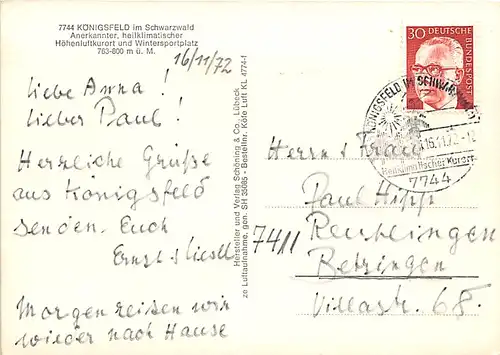 7744 KÖNIGSFELD im Schwarzwald
Anerkannter, heilklimatischer
Höhenluftkurort und Wintersportplatz
763-800 m ü. M.
16/11/72
Liebe Anna!
Lieber Paul!
Herzliche Grüße
aus Königsfeld
senden. Euch
Ernst + Liesel
Morgen reisen wir
wieder nach Hause
Hersteller und Verlag Schöning & Co., Lübeck
SH 3608S - Bestellnr. Köfe Luft KL 4774-1
ze Luftaufnahme, gen.
30 DEUTSCHE
BUNDESPOST
KÖNIGSFELD IM SCHWARZWALD
16.11.72-12
Heilklimatischer Kurort
7744
Herrn + Frau
Paul Hipp
7411 Reutlingen
Betzingen
Villastr. 68.